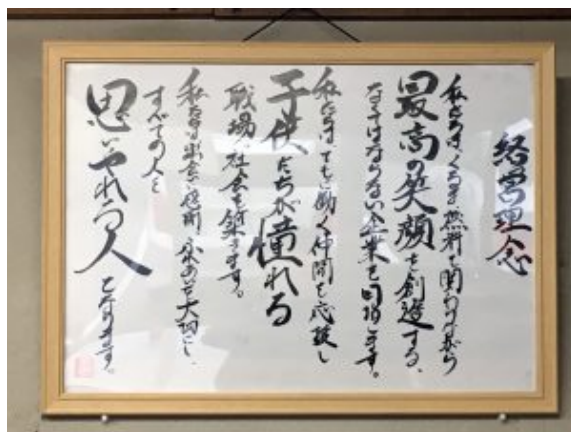 経営理念
私たちは、くるまと燃料を関わりながら
最高の笑顔を創造する、
なくてはならない企業を目指します。
私たちは、ともに働く仲間を応援し
子供たちが憧れる
職場、社会を築きます。
私たちは出会いに感謝、を大切にし、
すべての人を
思いやれる人となります。